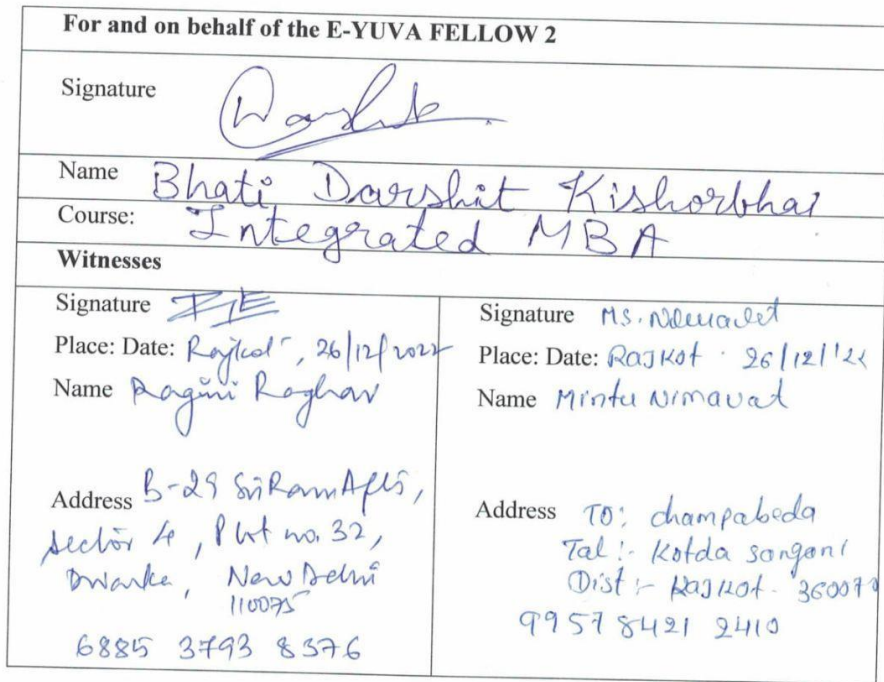 For and on behalf of the E-YUVA FELLOW 2
Signature Darshit
Name Bhati Darshit Kishorbhai
Course: Integrated MBA
Witnesses
Signature
Place: Date: Rajkot, 26/12/2022
Name Ragini Raghav
Address B-29 Sri Ram Apts,
Sector 4, Plot no. 32,
Dwarka, New Delhi
110075
6885 3793 8376
Signature Ms. Nimavat
Place: Date: Rajkot 26/12/'22
Name Mintu Nimavat
Address TO: champabeda
Tal:- Kotda sangani
Dist:- Rajkot - 360070
9957 8421 2410